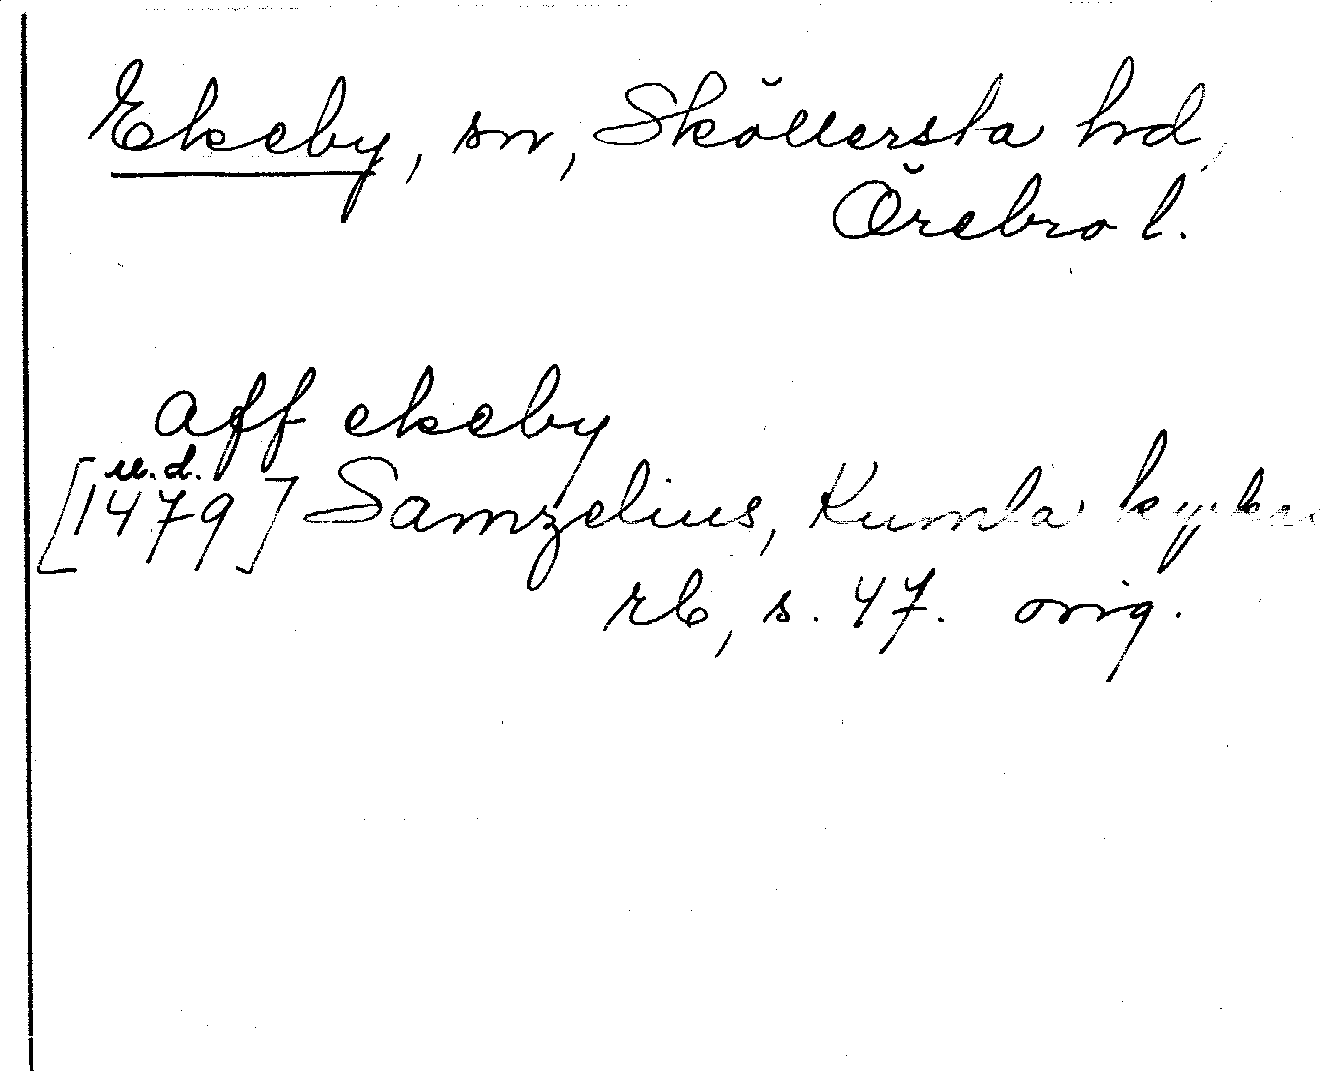 Ekeby, sn, Sköllersta hd,
Örebro l.
aff ekeby
u.d.
[1479] Samzelius, Kumla kyrkas
rb, s. 47. orig.